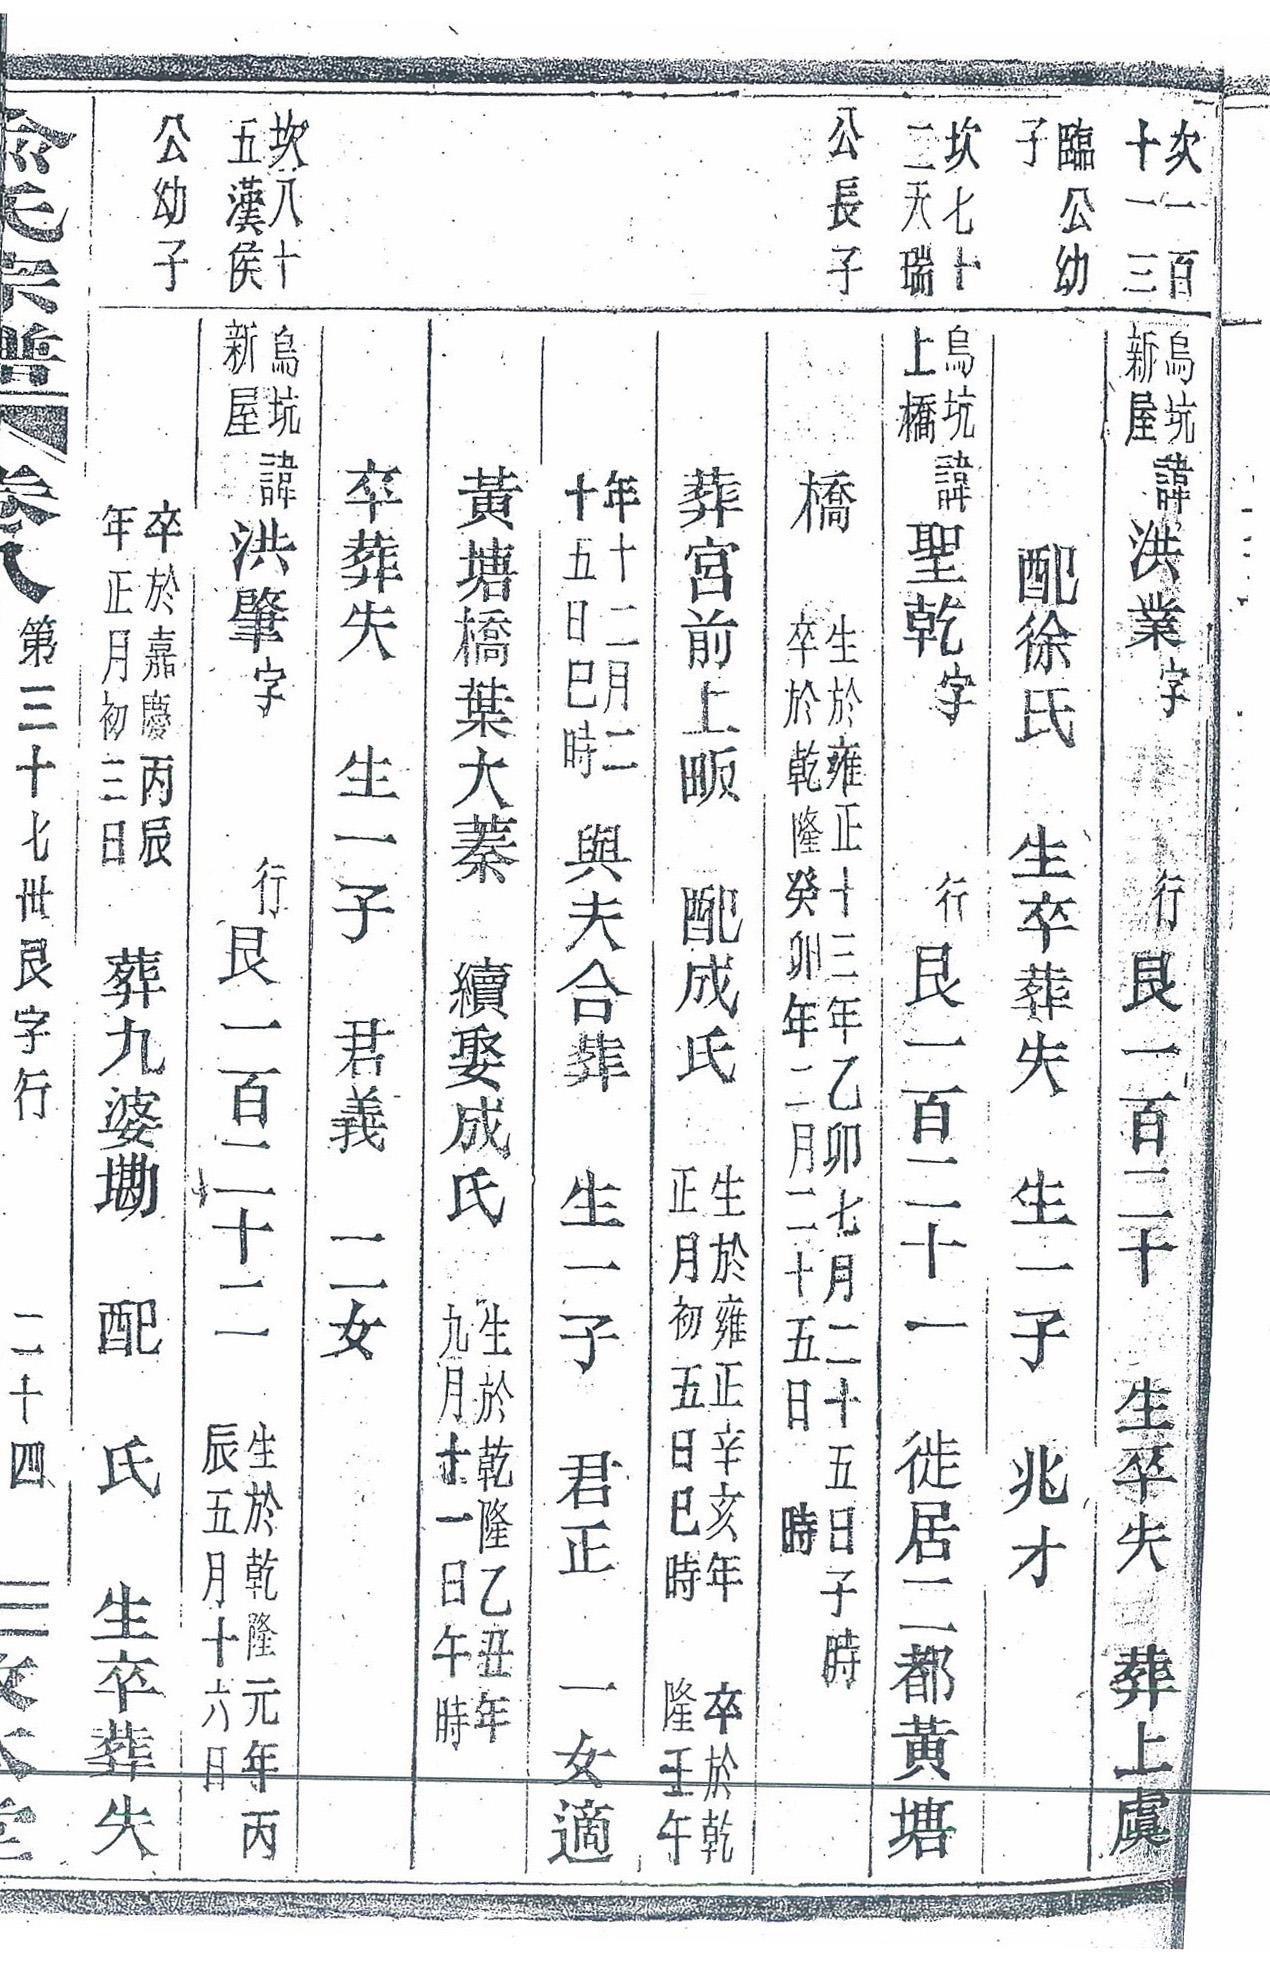 坎一百
十一三
臨公幼
子
烏坑
新屋
諱洪業字 行艮一百二十 生卒失 葬上虞
配徐氏 生卒葬失 生一子 兆才
坎七十
二天瑞
公長子
烏坑
上橋
諱聖乾字 行艮一百二十一 徙居二都黃塘
橋
生於雍正十三年乙卯七月二十五日子時
卒於乾隆癸卯年二月二十五日 時
葬宮前上畈 配成氏
生於雍正辛亥年
正月初五日巳時
卒於乾
隆壬午
年十二月二
十五日巳時
與夫合葬 生一子 君正 一女適
黃塘橋葉大蓁 續娶成氏
生於乾隆乙丑年
九月十一日午時
卒葬失 生一子 君義 二女
坎八十
五漢侯
公幼子
烏坑
新屋
諱洪肇字 行艮一百二十二
生於乾隆元年丙
辰五月十六日
卒於嘉慶丙辰
年正月初三日
葬九婆墈 配 氏 生卒葬失
氏宗譜 卷八 第三十七世艮字行 二十四